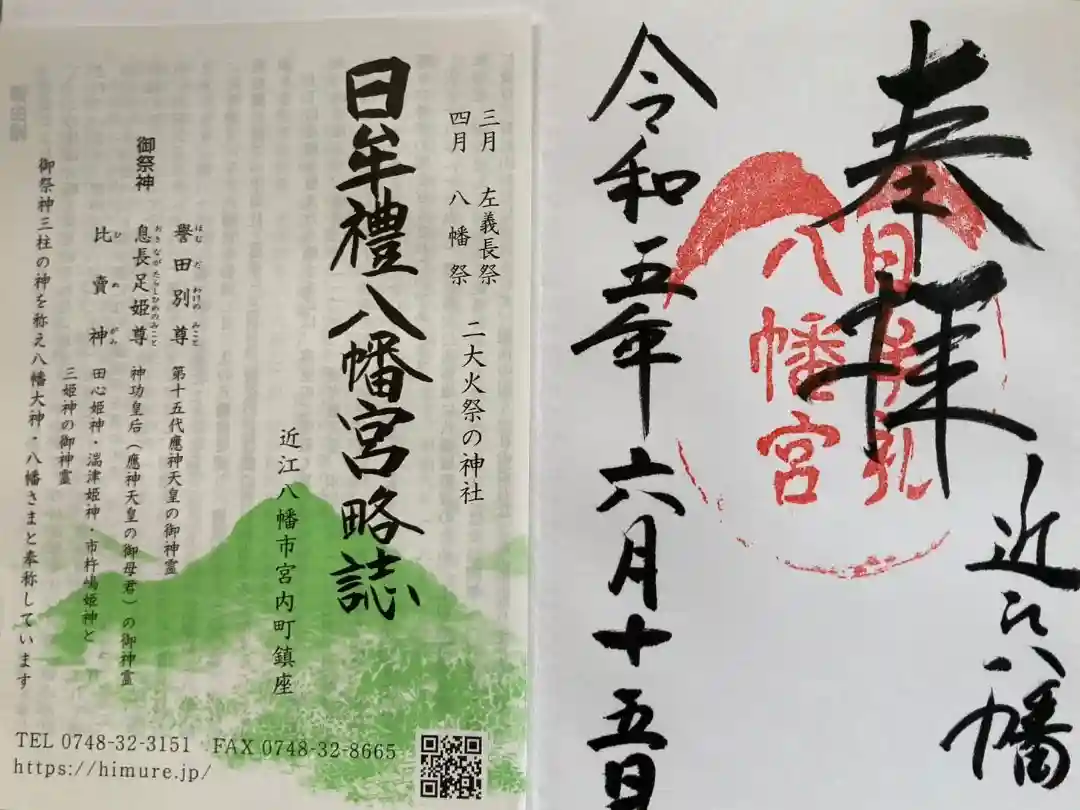 三月　左義長祭
四月　八幡祭
二大火祭の神社
日牟禮八幡宮略誌
近江八幡市宮内町鎮座
御祭神
譽田別尊
ほむだわけのみこと
第十五代應神天皇の御神霊
息長足姫尊
おきながたらしひめのみこと
神功皇后（應神天皇の御母君）の御神霊
比賣神
ひめがみ
田心姫神・湍津姫神・市杵嶋姫神と
三姫神の御神霊
御祭神三柱の神を称え八幡大神・八幡さまと奉称しています
TEL 0748-32-3151　FAX 0748-32-8665
https://himure.jp/
奉拝
近江八幡
日牟礼
八幡宮
令和五年六月十五日